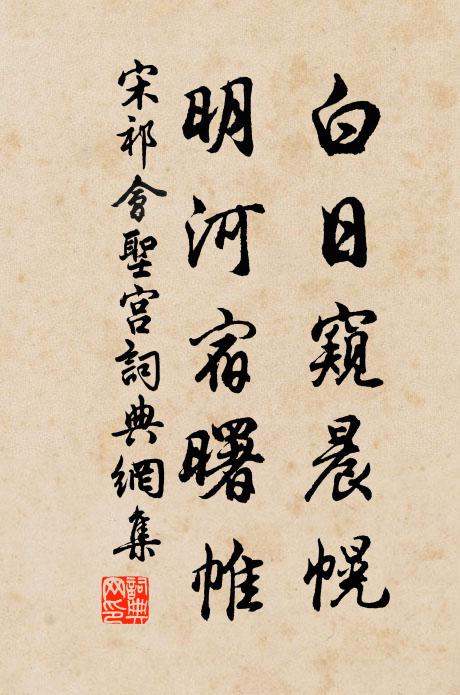 白日窺晨幌
明河宿曙帷
宋祁會聖宮詞典網集
詞典網印